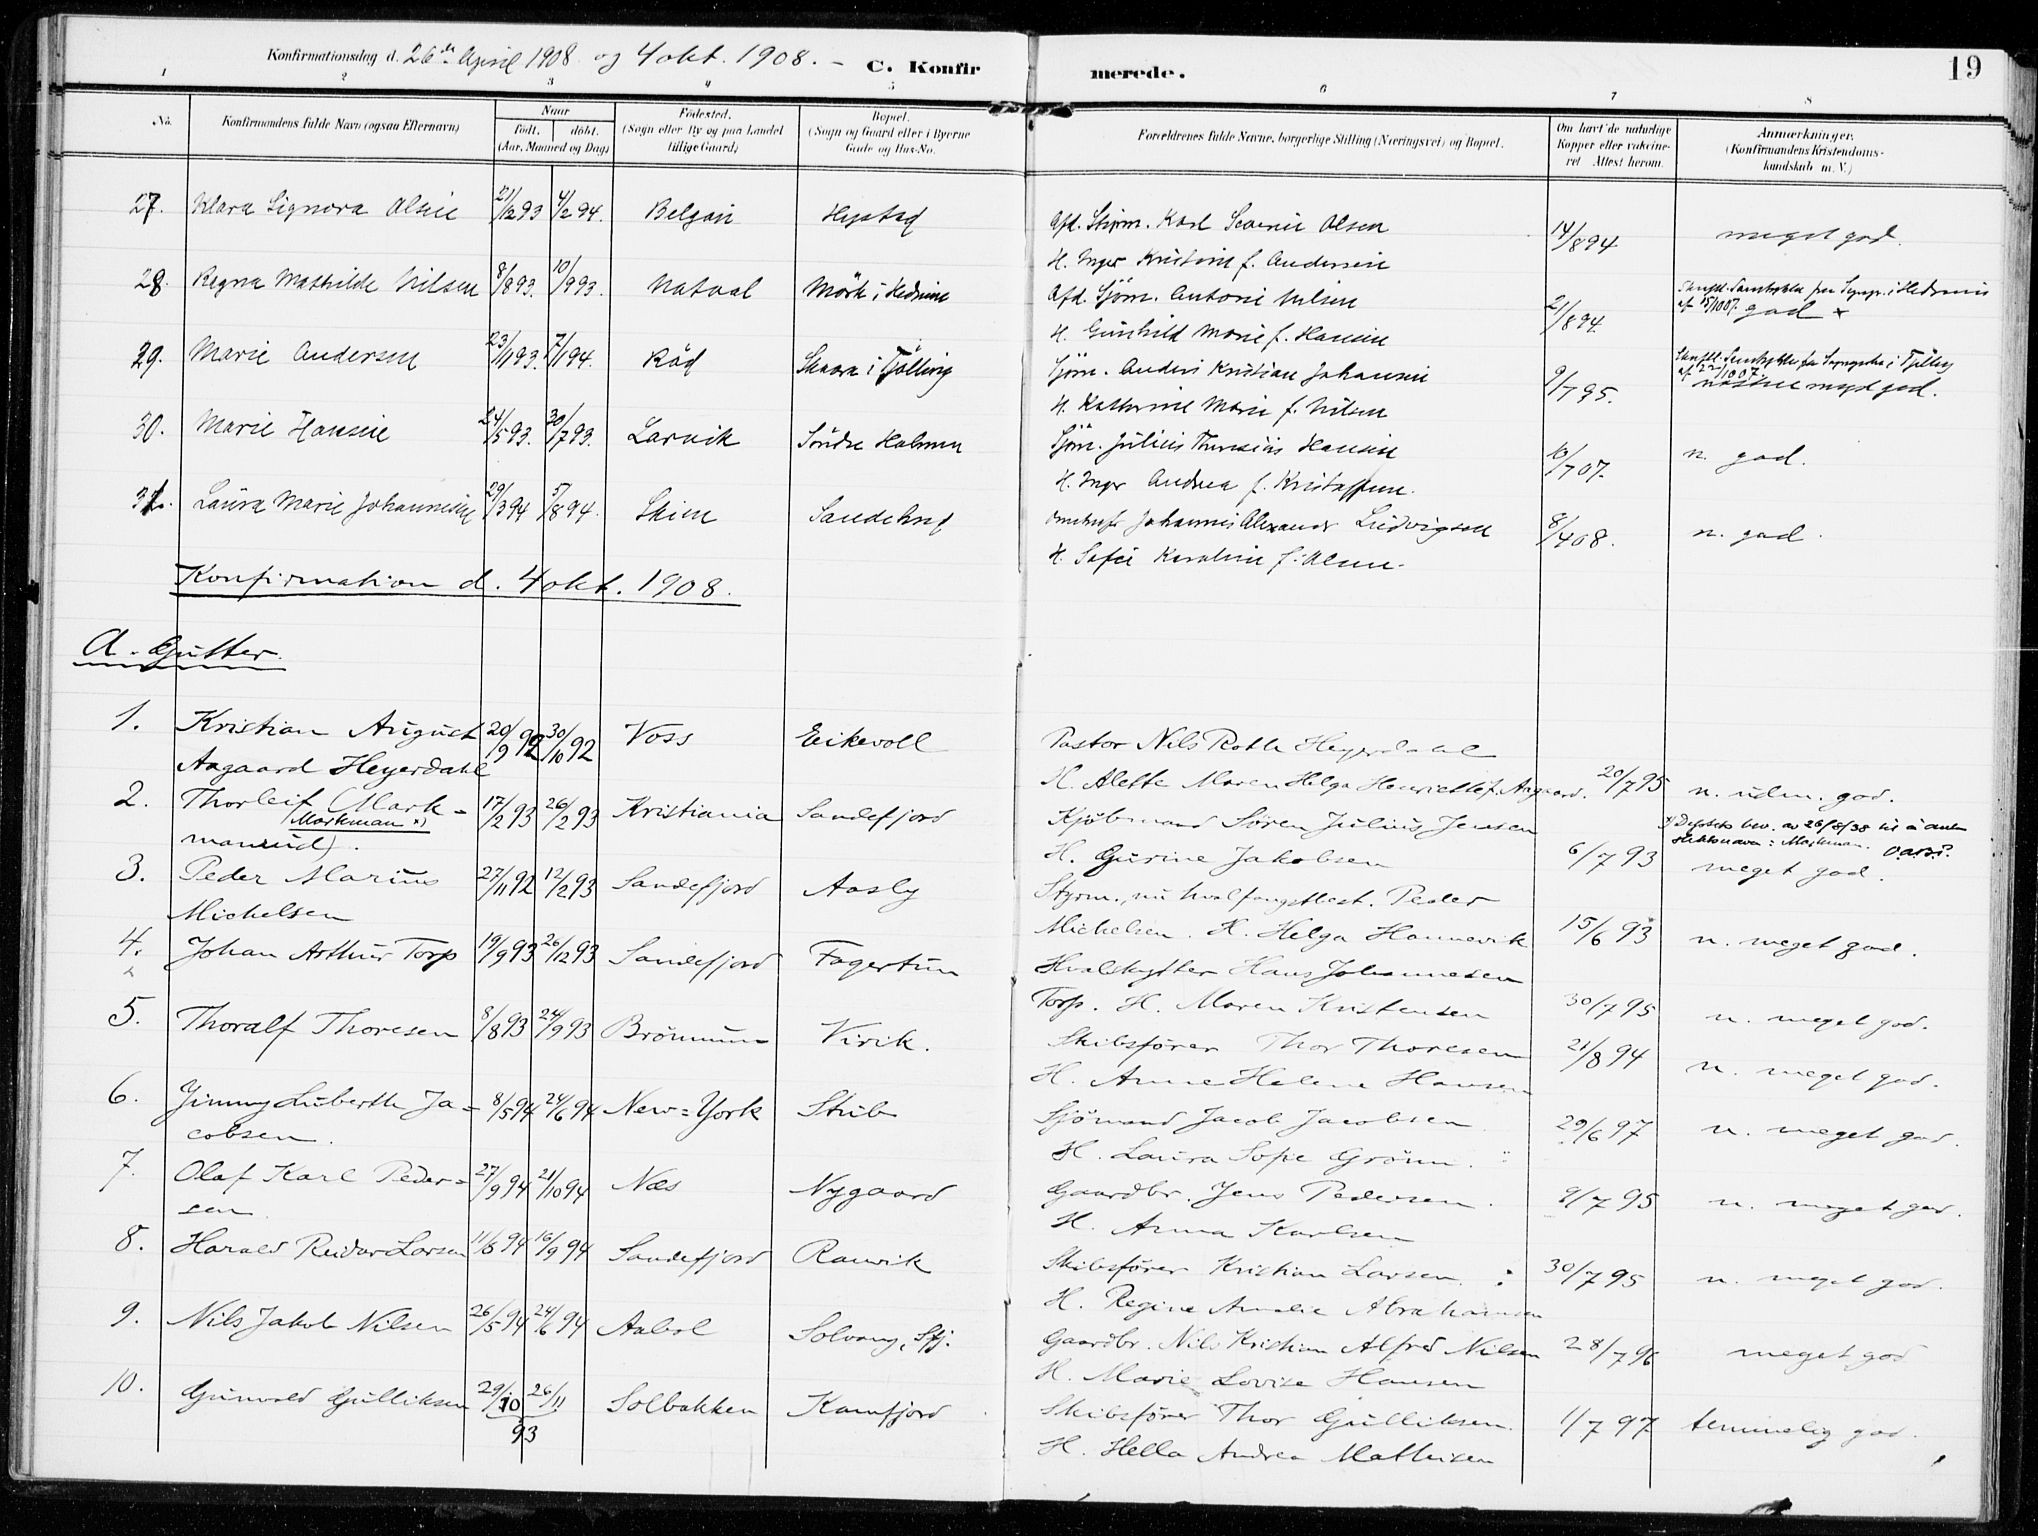 Konfirmationsdag d. 26de April 1908 og 4 okt. 1908. –
C. Konfir merede.
19
1 2 3 4 5 6 7 8
No.
Konfirmandens fulde Navn (ogsaa Efternavn)
Naar
født. døbt.
(Aar, Maaned og Dag)
Fødested.
(Sogn eller By og paa Landet
tillige Gaard)
Bopæl.
(Sogn og Gaard eller i Byerne
Gade og Hus-No.
Forældrenes fulde Navne, borgerlige Stilling (Næringsvei) og Bopæl.
Om havt de naturlige
Kopper eller vakcine-
ret. Attest herom.
Anmærkninger.
(Konfirmandens Kristendoms-
kundskab m. V.)
27. Klara Signora Olsen 21/12 93 4/2 94. Hystad Afd. Styrm. Karl Severin Olsen 14/8 94 meget god.
H. Inger Kristine f. Andersen
28. Ragna Mathilde Nilsen 8/8 93. 10/9 93. Natval Mörk i Hedrum Afd. Sjöm. Anton Nilsen 21/8 94. god x
af 15/10 07.
H. Gunhild Marie f. Hansen
29. Marie Andersen 23/11 93. 7/1 94. Röd i Tjölling Sjöm. Anders Kristian Johansen 9/7 95. meget god.
af 22/10 07.
H. Kathrine Marie f. Nilsen
30. Marie Hansen 24/5 93. 30/7 93. Larvik Söndre Holmen Sjöm. Julius Hansen 10/7 07. n. god.
H. Inger Andrea f. Kristoffersen.
31. Laura Marie Johannesen 29/3 94 5/8 94. Skien Johannes Alexander Ludvigsen 8/4 08. n. god.
H. Sofie Karoline f. Olsen.
Konfirmation d. 4 okt. 1908.
A. Gutter.
1. Kristian August 20/9 92 30/10 92 Voss Eikevoll Pastor Nils Rotle Heyerdahl
Aagaard Heyerdahl H. Alette Maren Helga Henriette f. Aagaard. 20/7 95 n. udm. god.
2. Thorleif (Mark= 17/2 93 26/2 93 Kristiania Sandefjord Kjöbmand Sören Julius Jensen
Markman x)
x) Depsts bev. av 26/8/38 til å anta
slektsnavn: Markman.
manrud). H. Gurine Jakobsen 6/7 93 meget god.
3. Peder Marius 27/11 92 12/2 93 Sandefjord Aasly Styrm., nu hvalfangstbest. Peder
Michelsen Michelsen. H. Helga Hannevik 15/6 93 n. meget god.
4. Johan Arthur Torp 19/9 93 26/12 93 Sandefjord Fagertun Hvalskytter Hans Johannesen
Torp. H. Maren Kristensen 30/7 95 n. meget god.
5. Thoralf Thoresen 8/8 93 24/9 93 Virik. Skibsförer Thor Thoresen 21/8 94 n. meget god.
H. Anne Helene Hansen
6. Jimmy Luberth Ja= 8/5 94 24/6 94 New=York Stub Sjömand Jacob Jacobsen 29/6 97 n. meget god.
cobsen. H. Laura Sofie Grönn.
7. Olaf Karl Peder= 27/9 94 21/10 94 Næs Nygaard Gaardbr. Jens Pedersen. 9/7 95 n. meget god.
sen. H. Anna Karlsen
8. Harald Reidar Larsen 11/8 94 16/9 94 Sandefjord Ranvik Skibsförer Kristian Larsen. 30/7 95 n. meget god.
H. Regine Amalie Abrahamsen
9. Nils Jakob Nilsen 26/5 94 24/6 94 Solvang, Sfj. Gaardbr. Nils Kristian Alfred Nilsen 28/7 96 meget god
H. Marie Lovise Hansen
10. Gunvald Gulliksen 29/10 26/11 Solbakken Kamfjord Skibsförer Thor Gulliksen. 1/7 97 temmelig god.
93
H. Hella Andrea Mathisen